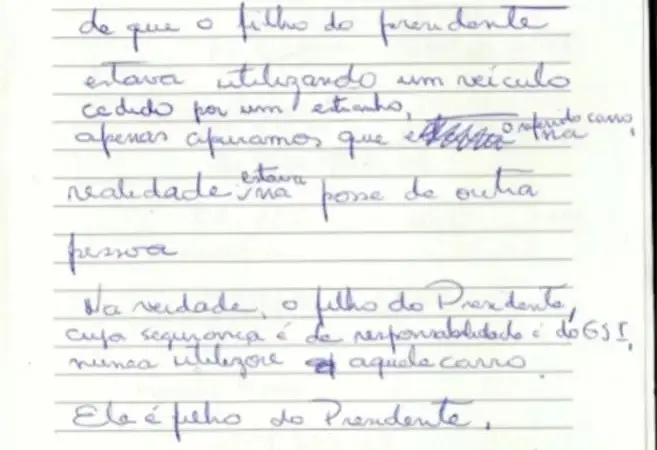 de que o filho do presidente
estava utilizando um veículo
cedido por um estranho,
apenas apuramos que o referido carro,
na
realidade estava na posse de outra
pessoa
Na verdade, o filho do Presidente,
cuja segurança é de responsabilidade é do GSI,
nunca utilizou aquele carro.
Ele é filho do Presidente.